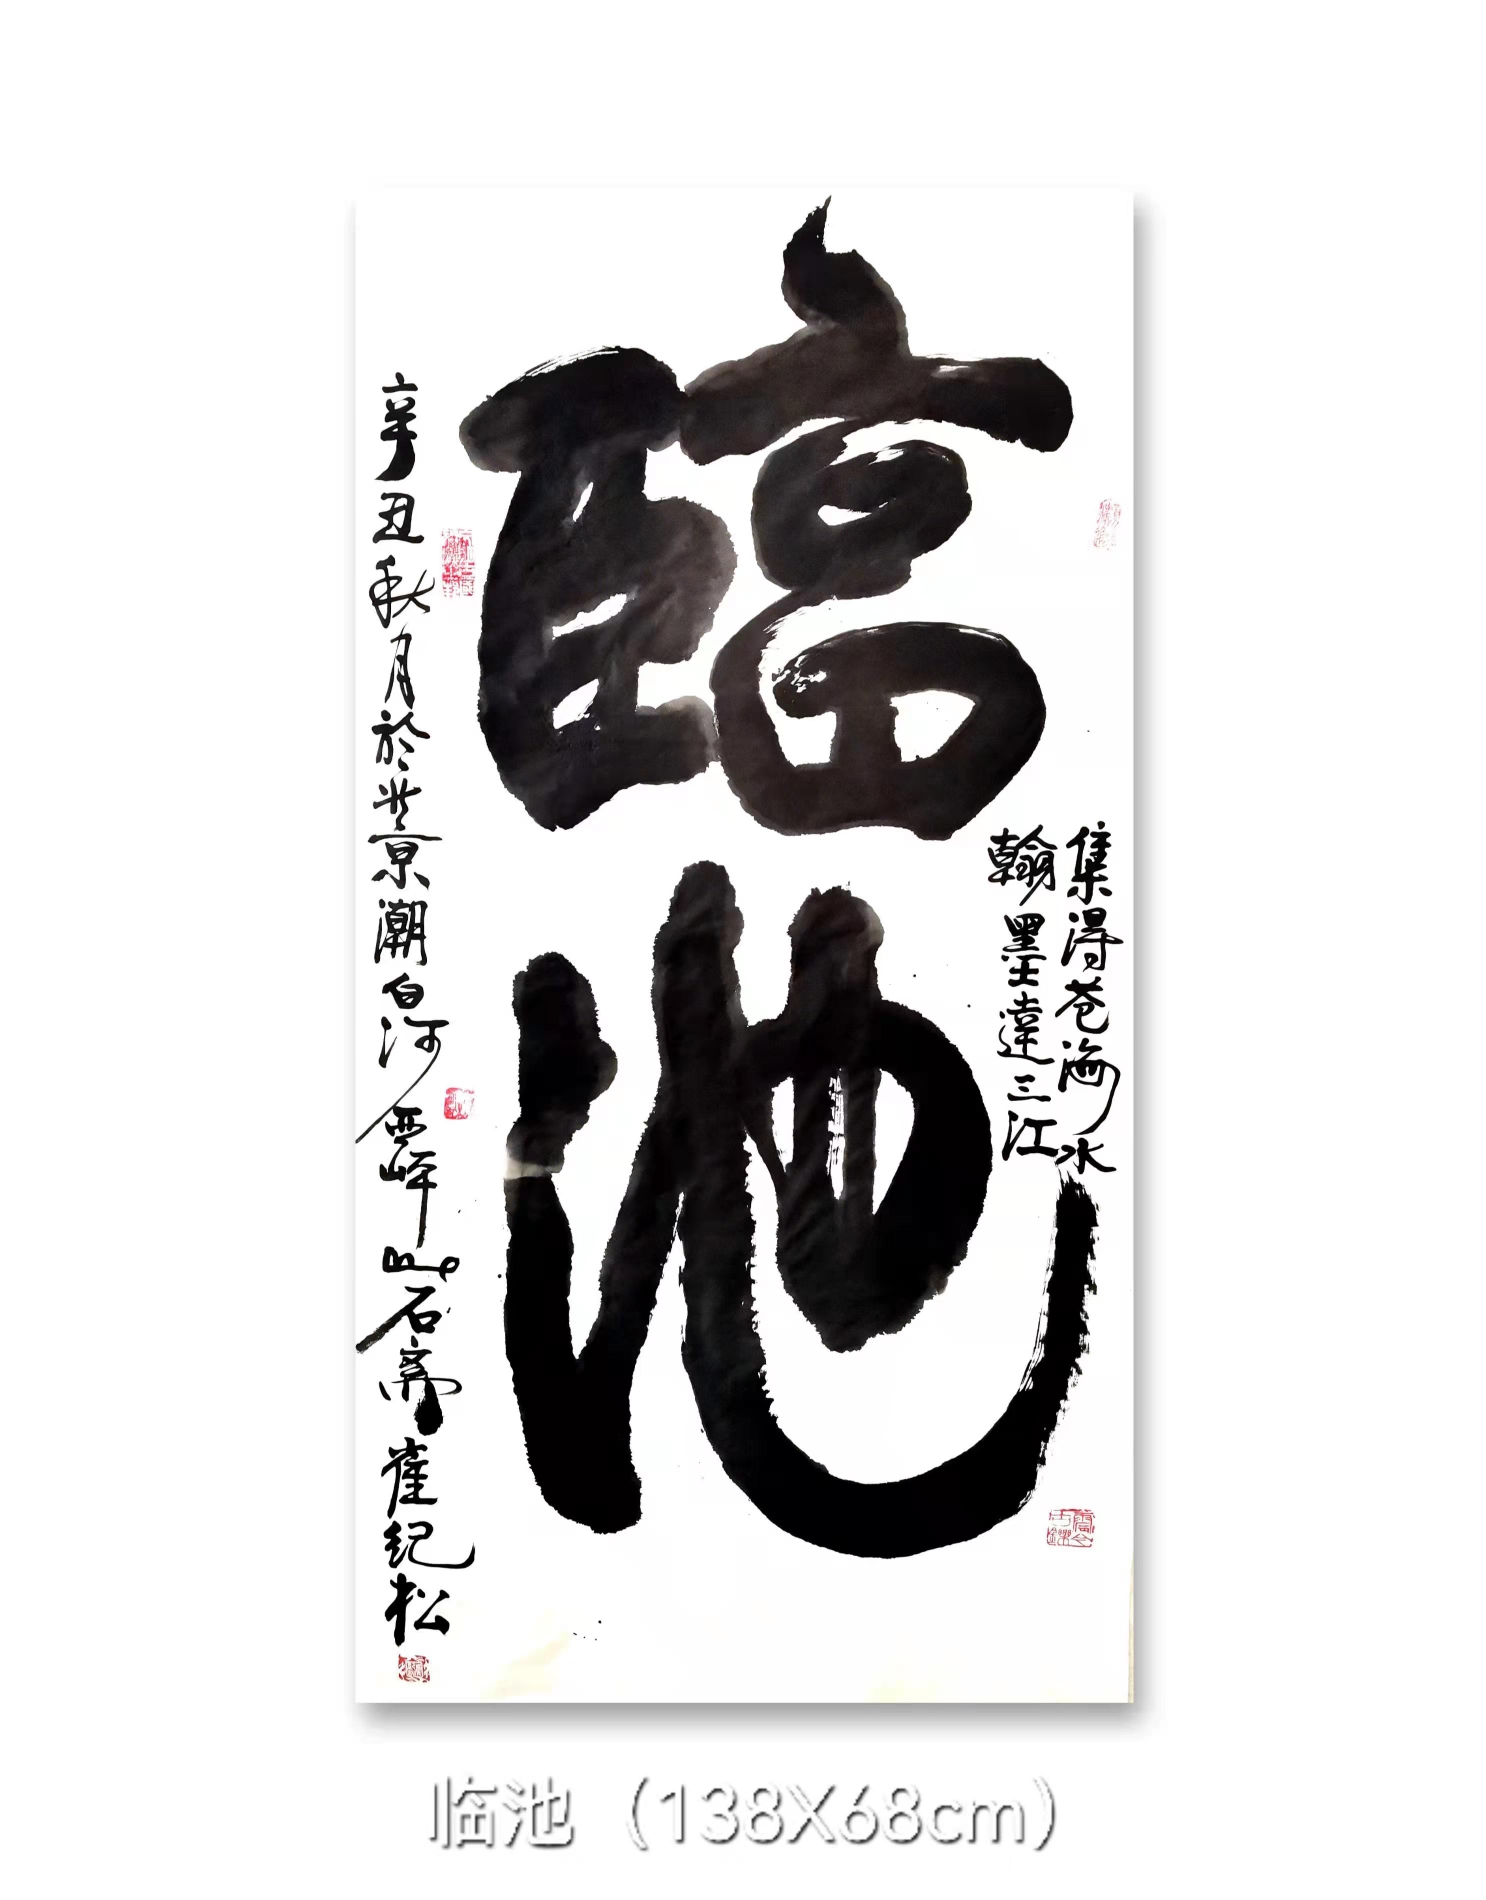 集得苍海水
翰墨達三江
臨池
辛丑秋月於北京潮白河 山石斋崔纪松
临池（138X68cm）